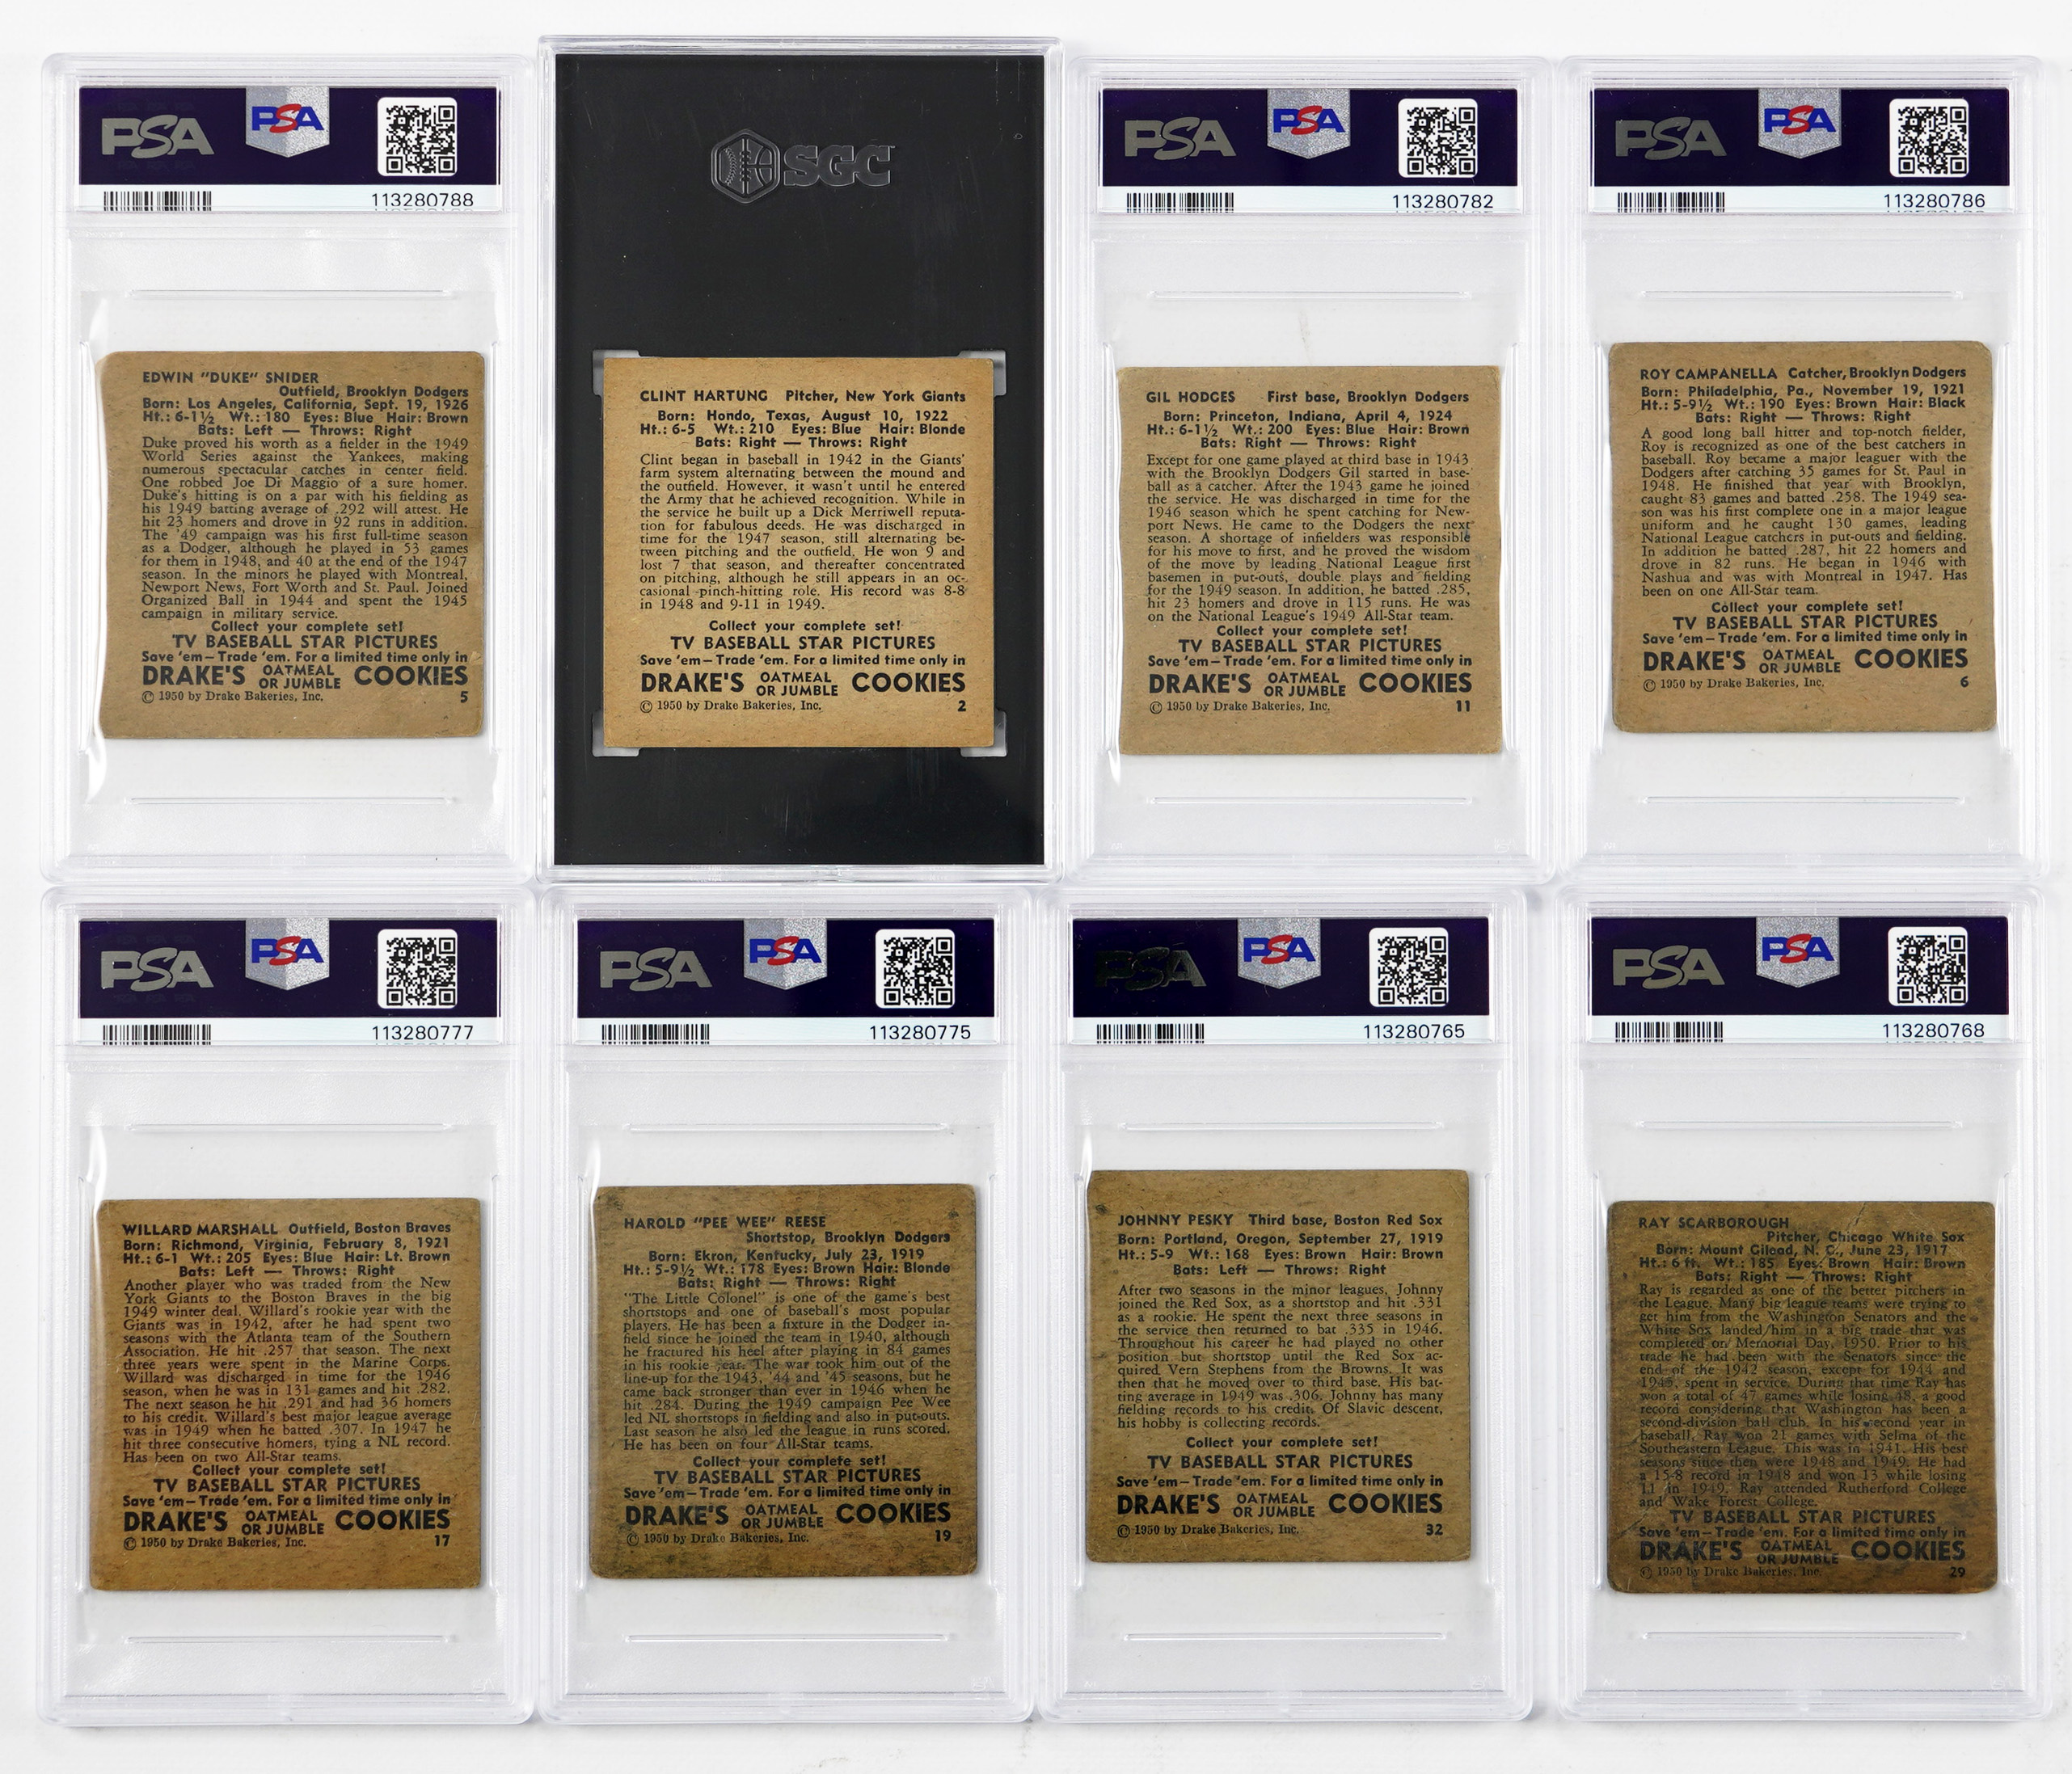 PSA PSA
113280788
EDWIN "DUKE" SNIDER
Outfield, Brooklyn Dodgers
Born: Los Angeles, California, Sept. 19, 1926
Ht.: 6-1½ Wt.: 180 Eyes: Blue Hair: Brown
Bats: Left — Throws: Right
Duke proved his worth as a fielder in the 1949
World Series against the Yankees, making
numerous spectacular catches in center field.
One robbed Joe Di Maggio of a sure homer.
Duke's hitting is on a par with his fielding as
his 1949 batting average of .292 will attest. He
hit 23 homers and drove in 92 runs in addition.
The '49 campaign was his first full-time season
as a Dodger, although he played in 53 games
for them in 1948, and 40 at the end of the 1947
season. In the minors he played with Montreal,
Newport News, Fort Worth and St. Paul. Joined
Organized Ball in 1944 and spent the 1945
campaign in military service.
Collect your complete set!
TV BASEBALL STAR PICTURES
Save 'em—Trade 'em. For a limited time only in
DRAKE'S OATMEAL OR JUMBLE COOKIES
© 1950 by Drake Bakeries, Inc. 5
SGC
CLINT HARTUNG Pitcher, New York Giants
Born: Hondo, Texas, August 10, 1922
Ht.: 6-5 Wt.: 210 Eyes: Blue Hair: Blonde
Bats: Right — Throws: Right
Clint began in baseball in 1942 in the Giants'
farm system alternating between the mound and
the outfield. However, it wasn't until he entered
the Army that he achieved recognition. While in
the service he built up a Dick Merriwell reputa-
tion for fabulous deeds. He was discharged in
time for the 1947 season, still alternating be-
tween pitching and the outfield. He won 9 and
lost 7 that season, and thereafter concentrated
on pitching, although he still appears in an oc-
casional pinch-hitting role. His record was 8-8
in 1948 and 9-11 in 1949.
Collect your complete set!
TV BASEBALL STAR PICTURES
Save 'em—Trade 'em. For a limited time only in
DRAKE'S OATMEAL OR JUMBLE COOKIES
© 1950 by Drake Bakeries, Inc. 2
PSA PSA
113280782
GIL HODGES First base, Brooklyn Dodgers
Born: Princeton, Indiana, April 4, 1924
Ht.: 6-1½ Wt.: 200 Eyes: Blue Hair: Brown
Bats: Right — Throws: Right
Except for one game played at third base in 1943
with the Brooklyn Dodgers Gil started in base-
ball as a catcher. After the 1943 game he joined
the service. He was discharged in time for the
1946 season which he spent catching for New-
port News. He came to the Dodgers the next
season. A shortage of infielders was responsible
for his move to first, and he proved the wisdom
of the move by leading National League first
basemen in put-outs, double plays and fielding
for the 1949 season. In addition, he batted .285,
hit 23 homers and drove in 115 runs. He was
on the National League's 1949 All-Star team.
Collect your complete set!
TV BASEBALL STAR PICTURES
Save 'em—Trade 'em. For a limited time only in
DRAKE'S OATMEAL OR JUMBLE COOKIES
© 1950 by Drake Bakeries, Inc. 11
PSA PSA
113280786
ROY CAMPANELLA Catcher, Brooklyn Dodgers
Born: Philadelphia, Pa., November 19, 1921
Ht.: 5-9½ Wt.: 190 Eyes: Brown Hair: Black
Bats: Right — Throws: Right
A good long ball hitter and top-notch fielder,
Roy is recognized as one of the best catchers in
baseball. Roy became a major leaguer with the
Dodgers after catching 35 games for St. Paul in
1948. He finished that year with Brooklyn,
caught 83 games and batted .258. The 1949 sea-
son was his first complete one in a major league
uniform and he caught 130 games, leading
National League catchers in put-outs and fielding.
In addition he batted .287, hit 22 homers and
drove in 82 runs. He began in 1946 with
Nashua and was with Montreal in 1947. Has
been on one All-Star team.
Collect your complete set!
TV BASEBALL STAR PICTURES
Save 'em—Trade 'em. For a limited time only in
DRAKE'S OATMEAL OR JUMBLE COOKIES
© 1950 by Drake Bakeries, Inc. 6
PSA PSA
113280777
WILLARD MARSHALL Outfield, Boston Braves
Born: Richmond, Virginia, February 8, 1921
Ht.: 6-1 Wt.: 205 Eyes: Blue Hair: Lt. Brown
Bats: Left — Throws: Right
Another player who was traded from the New
York Giants to the Boston Braves in the big
1949 winter deal. Willard's rookie year with the
Giants was in 1942, after he had spent two
seasons with the Atlanta team of the Southern
Association. He hit .257 that season. The next
three years were spent in the Marine Corps.
Willard was discharged in time for the 1946
season, when he was in 131 games and hit .282.
The next season he hit .291 and had 36 homers
to his credit. Willard's best major league average
was in 1949 when he batted .307. In 1947 he
hit three consecutive homers, tying a NL record.
Has been on two All-Star teams.
Collect your complete set!
TV BASEBALL STAR PICTURES
Save 'em—Trade 'em. For a limited time only in
DRAKE'S OATMEAL OR JUMBLE COOKIES
© 1950 by Drake Bakeries, Inc. 17
PSA PSA
113280775
HAROLD "PEE WEE" REESE
Shortstop, Brooklyn Dodgers
Born: Ekron, Kentucky, July 23, 1919
Ht.: 5-9½ Wt.: 178 Eyes: Brown Hair: Blonde
Bats: Right — Throws: Right
"The Little Colonel" is one of the game's best
shortstops and one of baseball's most popular
players. He has been a fixture in the Dodger in-
field since he joined the team in 1940, although
he fractured his heel after playing in 84 games
in his rookie year. The war took him out of the
line-up for the 1943, '44 and '45 seasons, but he
came back stronger than ever in 1946 when he
hit .284. During the 1949 campaign Pee Wee
led NL shortstops in fielding and also in put-outs.
Last season he also led the league in runs scored.
He has been on four All-Star teams.
Collect your complete set!
TV BASEBALL STAR PICTURES
Save 'em—Trade 'em. For a limited time only in
DRAKE'S OATMEAL OR JUMBLE COOKIES
© 1950 by Drake Bakeries, Inc. 19
PSA PSA
113280765
JOHNNY PESKY Third base, Boston Red Sox
Born: Portland, Oregon, September 27, 1919
Ht.: 5-9 Wt.: 168 Eyes: Brown Hair: Brown
Bats: Left — Throws: Right
After two seasons in the minor leagues, Johnny
joined the Red Sox, as a shortstop and hit .331
as a rookie. He spent the next three seasons in
the service then returned to bat .335 in 1946.
Throughout his career he had played no other
position but shortstop until the Red Sox ac-
quired Vern Stephens from the Browns. It was
then that he moved over to third base. His bat-
ting average in 1949 was .306. Johnny has many
fielding records to his credit. Of Slavic descent,
his hobby is collecting records.
Collect your complete set!
TV BASEBALL STAR PICTURES
Save 'em—Trade 'em. For a limited time only in
DRAKE'S OATMEAL OR JUMBLE COOKIES
© 1950 by Drake Bakeries, Inc. 32
PSA PSA
113280768
RAY SCARBOROUGH
Pitcher, Chicago White Sox
Born: Mount Gilead, N. C., June 23, 1917
Ht.: 6 ft. Wt.: 185 Eyes: Brown Hair: Brown
Bats: Right — Throws: Right
Ray is regarded as one of the better pitchers in
the League. Many big league teams were trying to
get him from the Washington Senators and the
White Sox landed him in a big trade that was
completed on Memorial Day, 1950. Prior to his
trade he had been with the Senators since the
end of the 1942 season, except for 1944 and
1945, spent in service. During that time Ray has
won a total of 47 games while losing 48, a good
record considering that Washington has been a
second-division ball club. In his second year in
baseball, Ray won 21 games with Selma of the
Southeastern League. This was in 1941. His best
seasons since then were 1948 and 1949. He had
a 15-8 record in 1948 and won 13 while losing
11 in 1949. Ray attended Rutherford College
and Wake Forest College.
TV BASEBALL STAR PICTURES
Save 'em—Trade 'em. For a limited time only in
DRAKE'S OATMEAL OR JUMBLE COOKIES
© 1950 by Drake Bakeries, Inc. 29